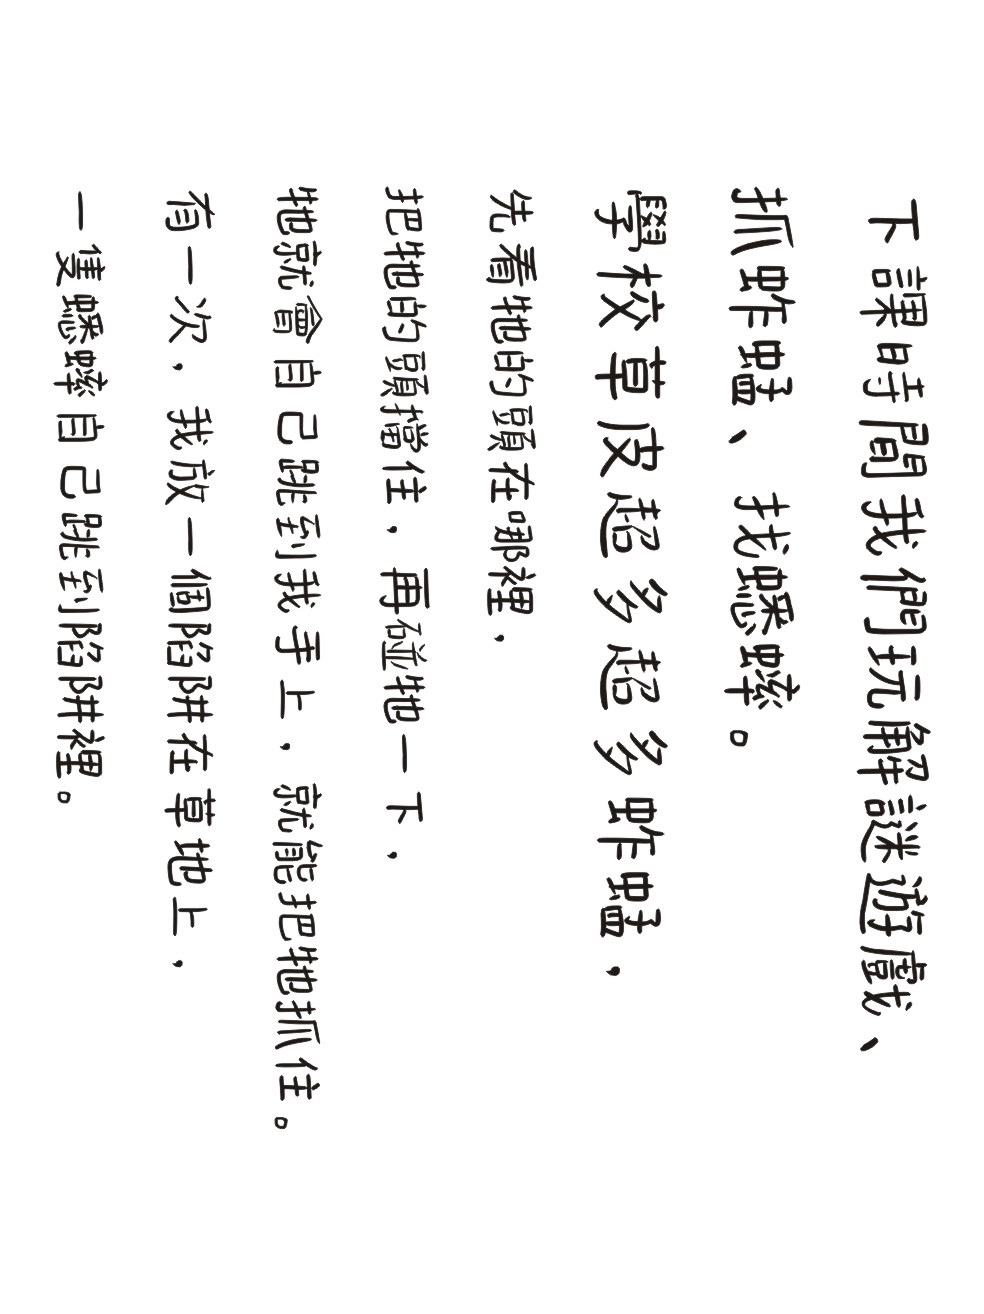 下課時間我們玩解謎遊戲、
抓蚱蜢、找蟋蟀。
學校草皮超多超多蚱蜢，
先看牠的頭在哪裡，
把牠的頭擋住，再碰牠一下，
牠就會自己跳到我手上，就能把牠抓住。
有一次，我放一個陷阱在草地上，
一隻蟋蟀自己跳到陷阱裡。